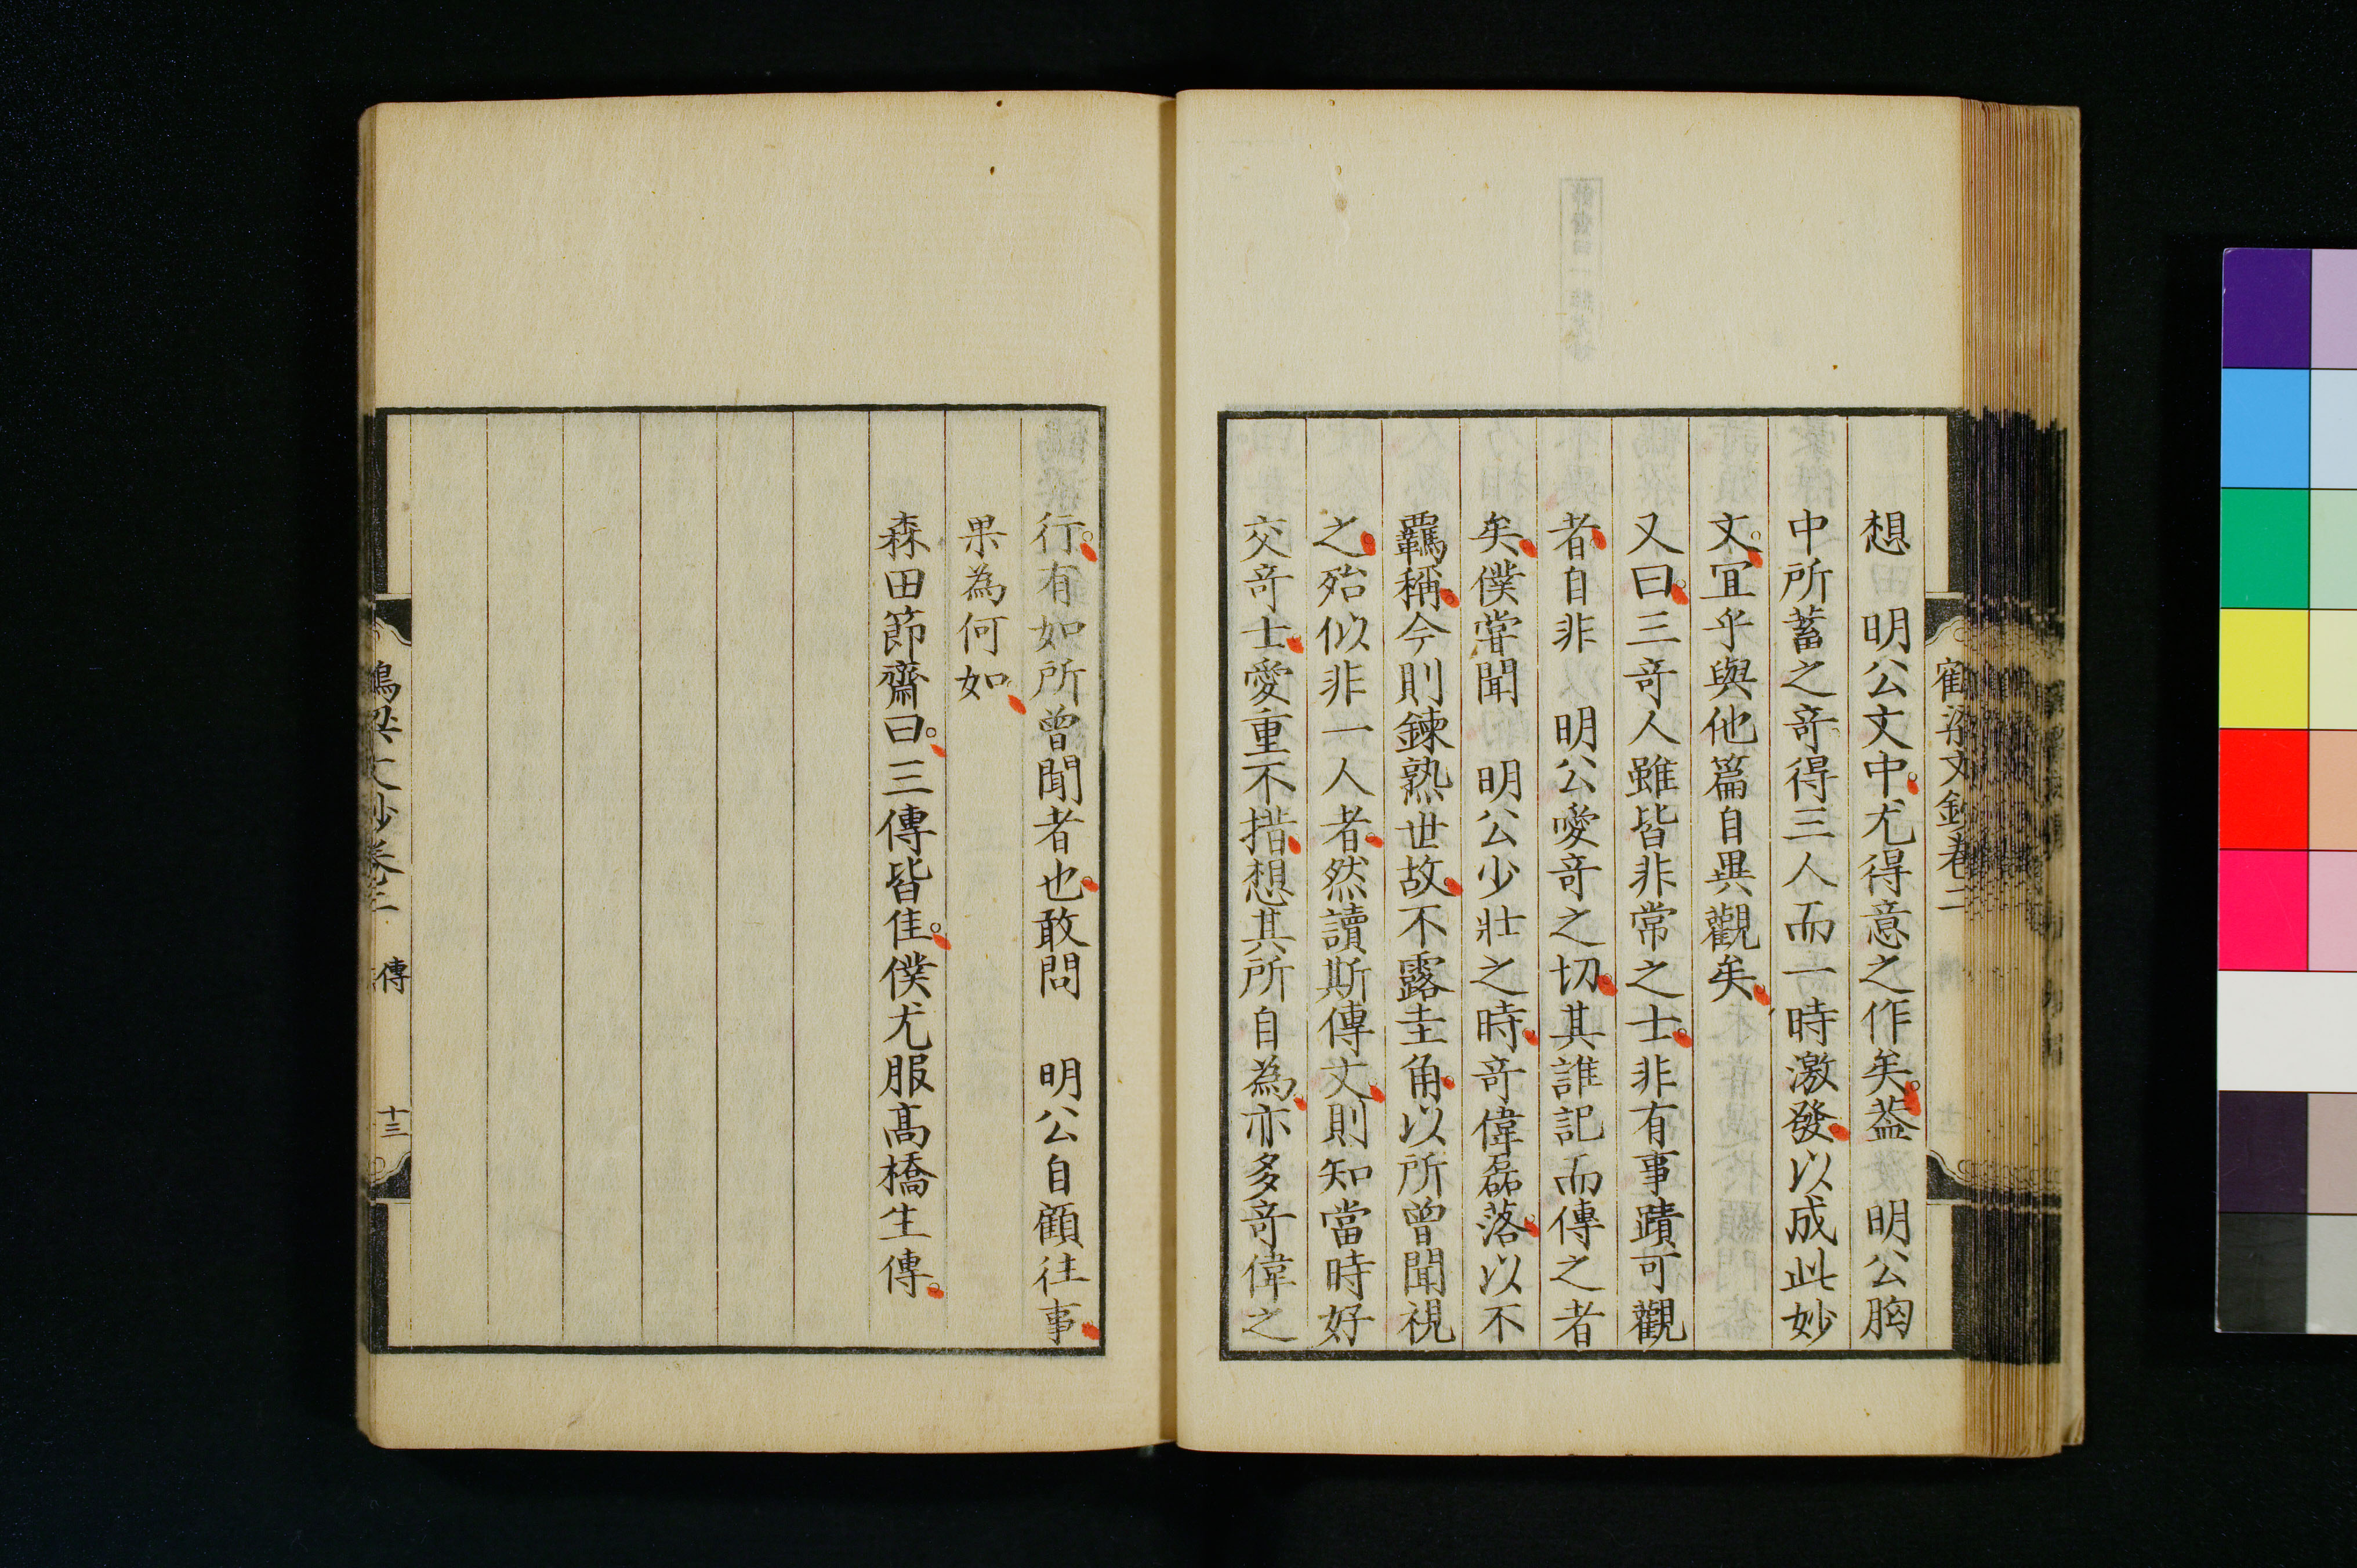 想　明公文中尤得意之作矣葢　明公胸
中所蓄之竒得三人而一時激發以成此妙
文冝乎與他篇自異觀矣
又曰三竒人雖皆非常之士非有事蹟可觀
者自非　明公愛竒之切其誰記而傳之者
矣僕甞聞　明公少壯之時竒偉磊落以不
羈稱今則鍊熟世故不露圭角以所曽聞視
之殆似非一人者然讀斯傳文則知當時好
交竒士愛重不措想其所自為亦多竒偉之
行有如所曽聞者也敢問　明公自顧往事
果為何如
森田節齋曰三傳皆佳僕尤服髙橋生傳
傳
十三